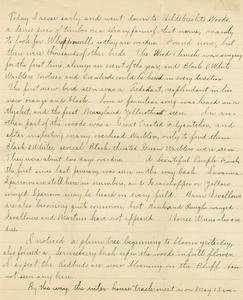 Today I arose early and went down to Hildebrecht's Woods,
a dense piece of timber near Gray farm that morning, mainly
to look for as they are overdue. Found none, but
there were thousands of other birds. The Wood Thrush was singing
for the first time, always an event of the year, and Black & White
Warblers, Vireos, and Ovenbirds could be heard in every direction.
The first new bird seen was a Redstart, resplendent in his
new orange and black. Soon a familiar song was heard in a
thicket, and the first Maryland Yellowthroat seen. In an-
other part of the woods was a Great Crested Flycatcher, and
after inspecting many overhead Warblers, only to find them
Black & White, several Black-throated Green Warblers were seen.
They were about two days overdue. A beautiful Purple Finch
the first since last autumn was seen on the way back. Savanna
Sparrows are still here in numbers, and the Grasshopper or Yellow
winged Sparrow may be heard in every field. Barn Swallows
are also becoming quite common, but Bank and Rough-winged
Swallows and Martins have not appeared. House Wrens also are
due.
I noticed a plum tree beginning to bloom yesterday,
also found a Juneberry bush up in the woods in full flower.
I expect the Redbuds are now blooming on the Bluff. Have
not seen any here.
By this way the